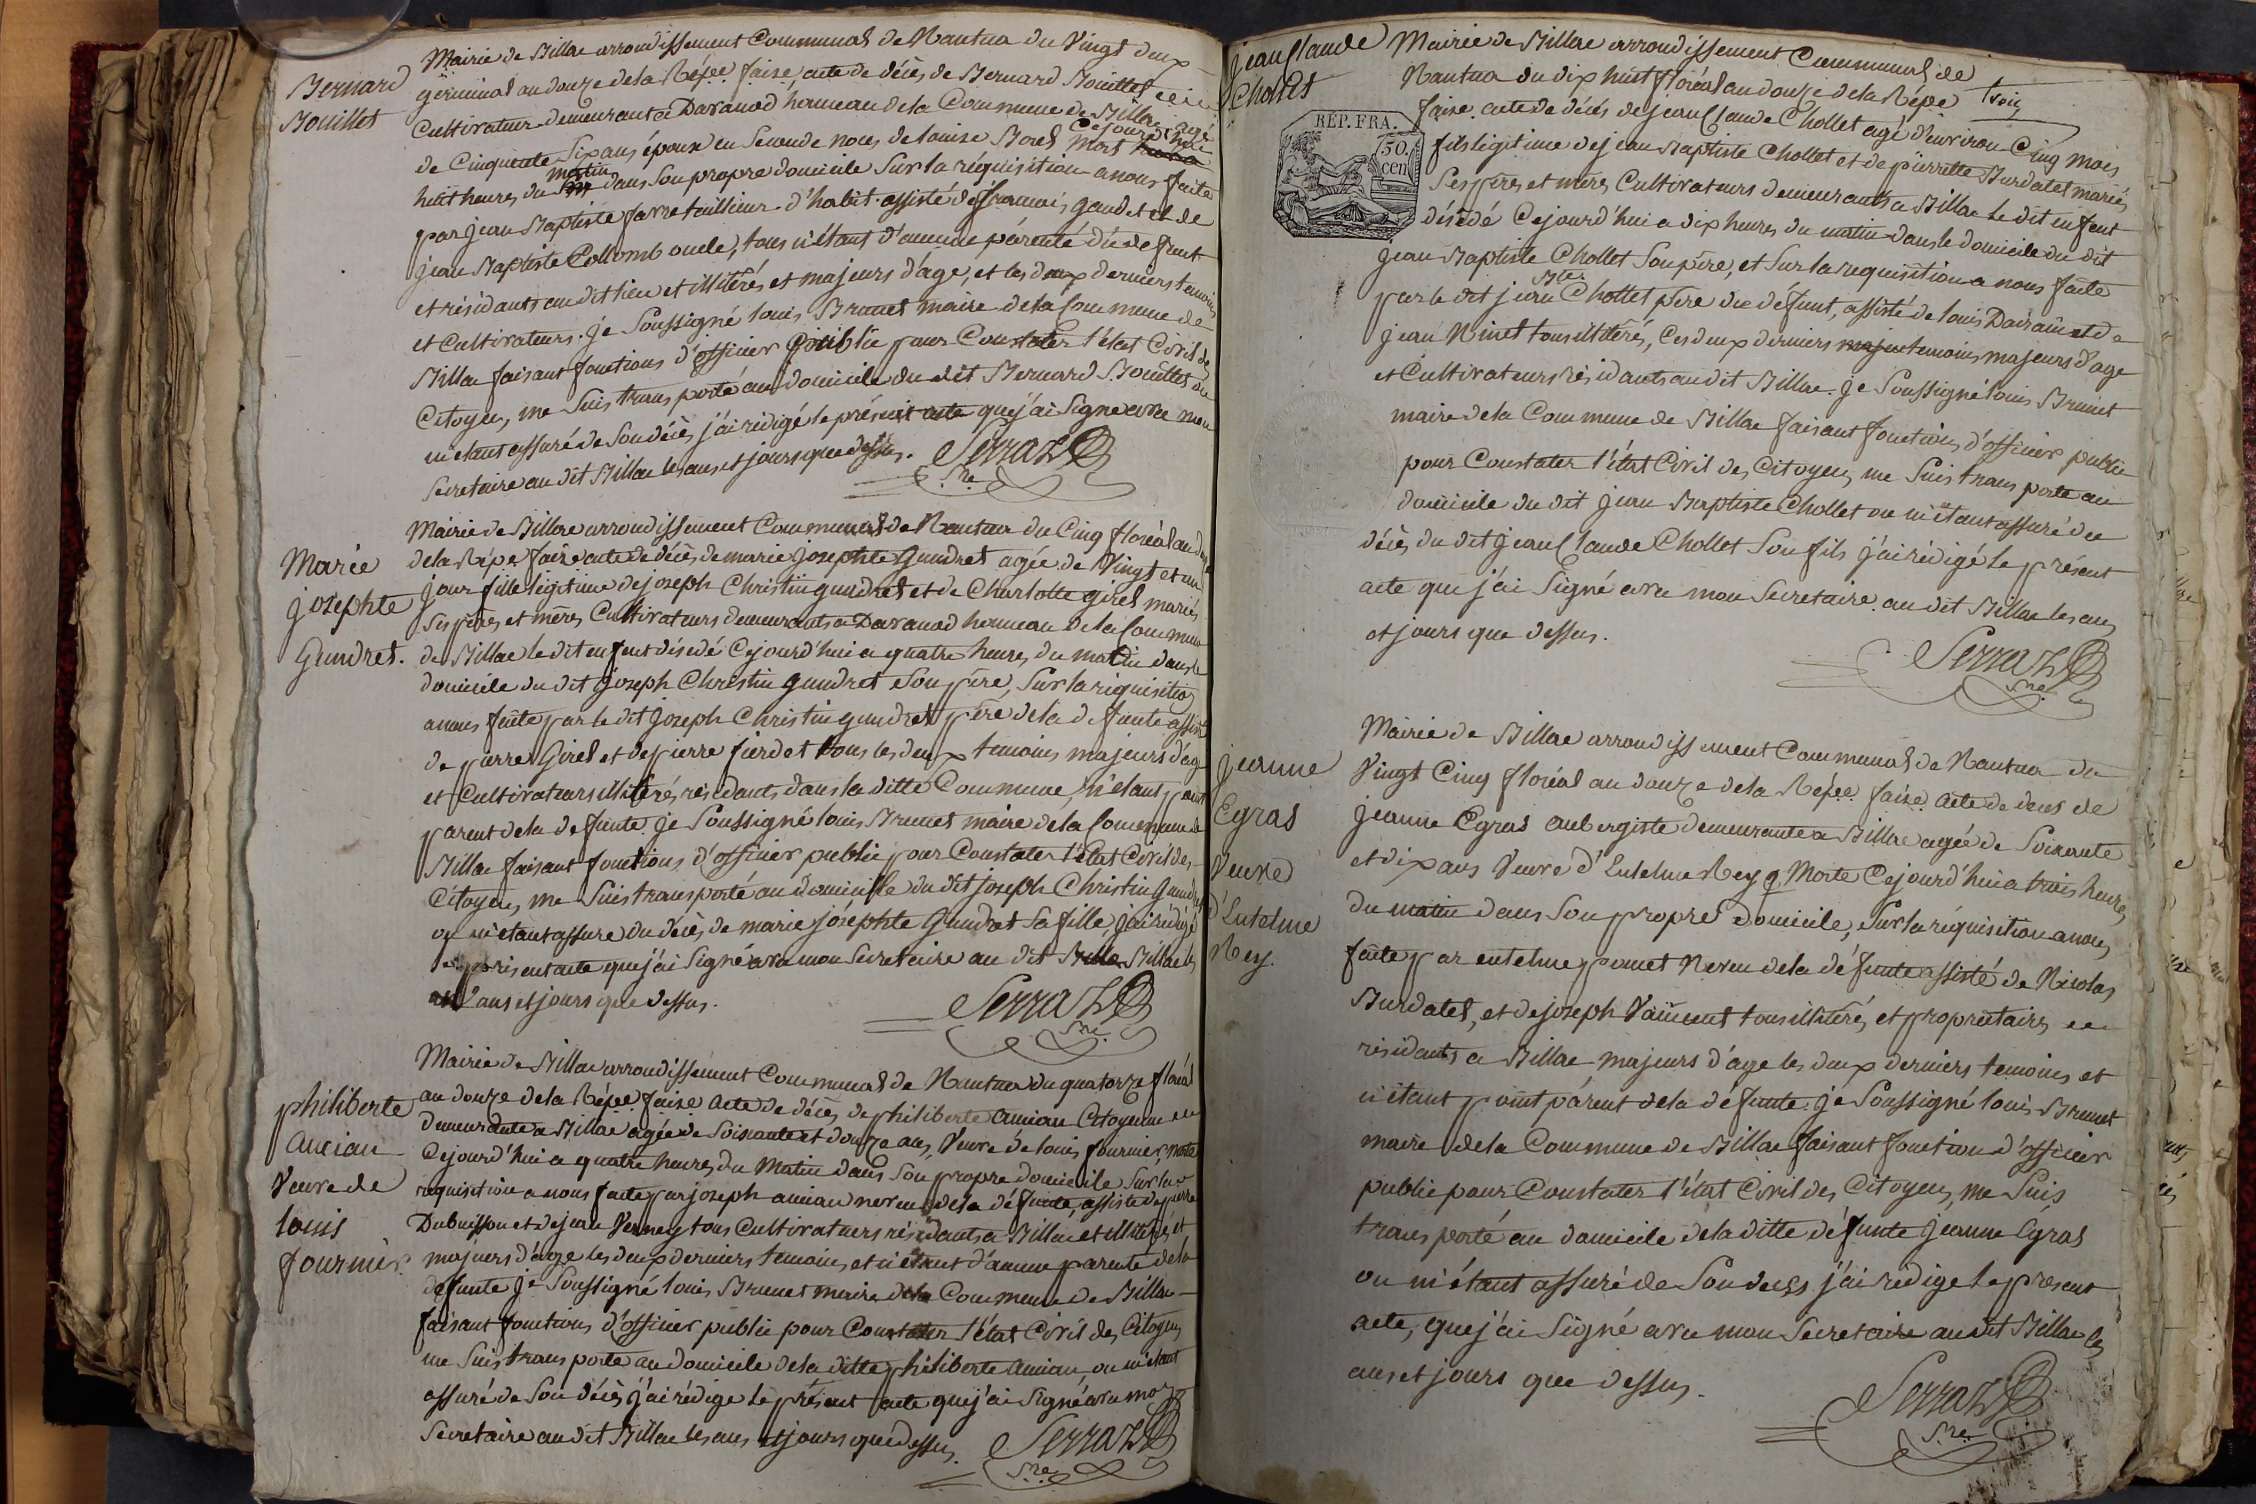 Bernard
Bouillet
Mairie de Billac arrondissement Communal de Nantua du Vingt deux
germinal an douze de la Répee. faise. acte de décès de Bernard Bouillet
Cultivateur demeurant a Davanod hameau de la Commune de Billac agé
de Cinquante Six ans époux en Seconde noces de louise Borel Mort Cejourd'hui
huit heures du matin dans Son propre domicile Sur la réquisition a nous faite
par jean Baptiste favre tailleur d'habit assisté de françois gaudet et de
jean Baptiste Collomb oncle, tous n'étant d'aucune pârenté du defunt
et résidants au dit lieu et illitérés et majeurs d'age, et les deux derniers temoins
et Cultivateurs. je Soussigné louis Brunet maire de la Commune de
Billac faisant fonctions d'officier public pour Constater l'état Civil des
Citoyens, me Suis transporté au domicile du dit Bernard Bouillet ou
m'etant assuré de Son décès j'ai rédigé le présent acte que j'ai Signé avec mon
Secretaire au dit Billac les ans et jours que dessus.
Serraz
S.re
Marie
josephte
Gundret.
Mairie de Billac arrondissement Communal de Nantua du Cinq floréal an douze
de la Répe. faise acte de décès de marie josephte Gundret agée de Vingt et un
jour fille légitime de joseph Christin gundret et de Charlotte girel mariés
Ses pères et mères Cultivateurs demeurants a Davanod hameau de la Commune
de Billac le dit enfent désédé Cejourd'hui a quatre heures du matin dans le
domicile du dit joseph Christin gundret Son père, Sur la réquisition
a nous faite par le dit joseph Christin gundret père de la defunte assisté
de pierre Girel et de pierre fierdet tous les deux temoins majeurs d'age
et Cultivateurs illitérés résidants dans la ditte Commune, n'étant point
parent de la defunte. je Soussigné louis Brunet maire de la Commune de
Billac faisant fonctions d'officier public pour Constater l'état Civil des
Citoyens, me Suis transporté au domicille du dit joseph Christin Gundret
ou m'etant assure du décès de marie joséphte Gundret Sa fille, j'ai rédigé
le présent acte que j'ai Signé avec mon Secretaire au dit Billac les
ans et jours que dessus.
Serraz
S.re
philiberte
Ancian
Veuve de
louis
fournier.
Mairie de Billac arrondissement Communal de Nantua du quatorze floréal
an douze de la Répee. faise. acte de décès de philiberte Ancian Citoyenne
demeurante a Billac agée de Soixante et douze ans, Veuve de louis fournier, morte
Cejourd'hui a quatre heures du Matin dans Son propre domicile Sur la
requisition a nous faite par joseph ancian neveu de la défunte, assisté de pierre
Dubuisson et de jean Verney tous Cultivateurs résidants a Billac et illitérés et
majeurs d'age les deux derniers temoins, et n'étant d'aucune parente de la
défunte je Soussigné louis Brunet maire de la Commune de Billac
faisant fonctions d'officier public pour Constater l'état Civil des Citoyens
me Suis transporté au domicile de la ditte philiberte Ancian, ou m'étant
assuré de Son décès j'ai rédige le présent acte que j'ai Signé avec mon
Secretaire au dit Billac les ans et jours que dessus.
Serraz
S.re
jean Claude
Chollet
RÉP. FRA.
50.
cen
Mairie de Billac arrondissement Communal de
Nantua du dix huit floréal an douze de la Répe
faise. acte de décès de jean Claude Chollet agé d'environ Cinq mois
fils légitime de jean Baptiste Chollet et de pierrette Burdalet mariés
Ses pères et mères Cultivateurs demeurants a Billac le dit enfent
désédé Cejourd'hui a dix heures du matin dans le domicile du dit
jean Baptiste Chollet Son père, et Sur la requisition a nous faite
par le dit jean Bte Chollet père du défunt, assisté de louis Dairain et de
jean Ninet tous illitérés, Ces deux derniers temoins majeurs d'age
et Cultivateurs résidants au dit Billac. je Soussigné louis Brunet
maire de la Commune de Billac faisant fonctions d'officier public
pour Constater l'état Civil des Citoyens me Suis transporté au
domicile du dit jean Baptiste Chollet ou m'étant assuré du
décès du dit jean Claude Chollet Son fils j'ai rédigé le présent
acte que j'ai Signé avec mon Secretaire au dit Billac les ans
et jours que dessus.
Serraz
S.re
jeanne
Egras
Veuve
d'Entelme
Rey.
Mairie de Billac arrondissement Communal de Nantua du
Vingt Cinq floréal an douze de la Répee. faise. acte de deces de
jeanne Egras aubergiste demeurante a Billac agée de Soixante
et dix ans Veuve d'Entelme Rey Morte Cejourd'hui a trois heures
du matin dans Son propre domicile, Sur la réquisition a nous
faite par entelme ponet Neveu de la défunte assisté de Nicolas
Burdalet, et de joseph Vaincent tous illitérés et proprietaires
residants a Billac majeurs d'age les deux derniers temoins et
n'étant point pârent de la défunte. je Soussigné louis Brunet
maire de la Commune de Billac faisant fonctions d'officier
public pour Constater l'état Civil des Citoyens, me Suis
transporté au domicile de la ditte défunte jeanne Egras
ou m'étant assuré de Son deces j'ai redige le present
acte, que j'ai Signé avec mon Secretaire au dit Billac les
ans et jours que dessus.
Serraz
S.re